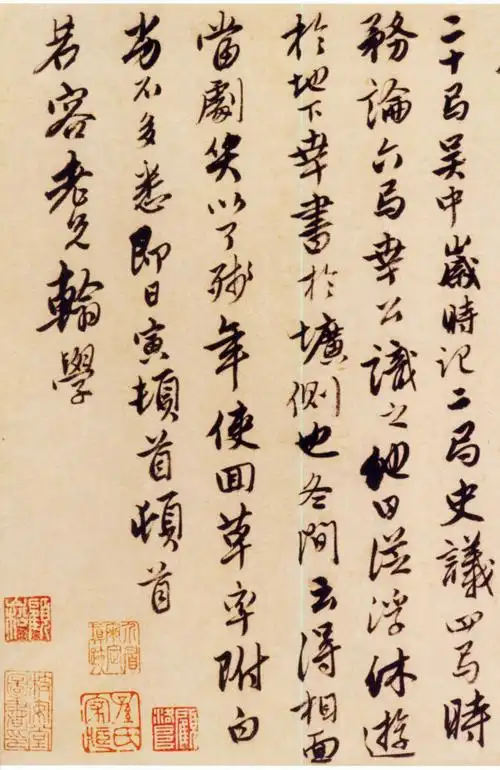 二十卷吳中歲時記二卷史議四卷時
務論六卷幸公識之他日從浮休遊
於地下幸書於壙側也冬間云得相面
當劇笑以了殘年使回草率附白
不多悉即日寅頓首頓首
若容老兄翰學